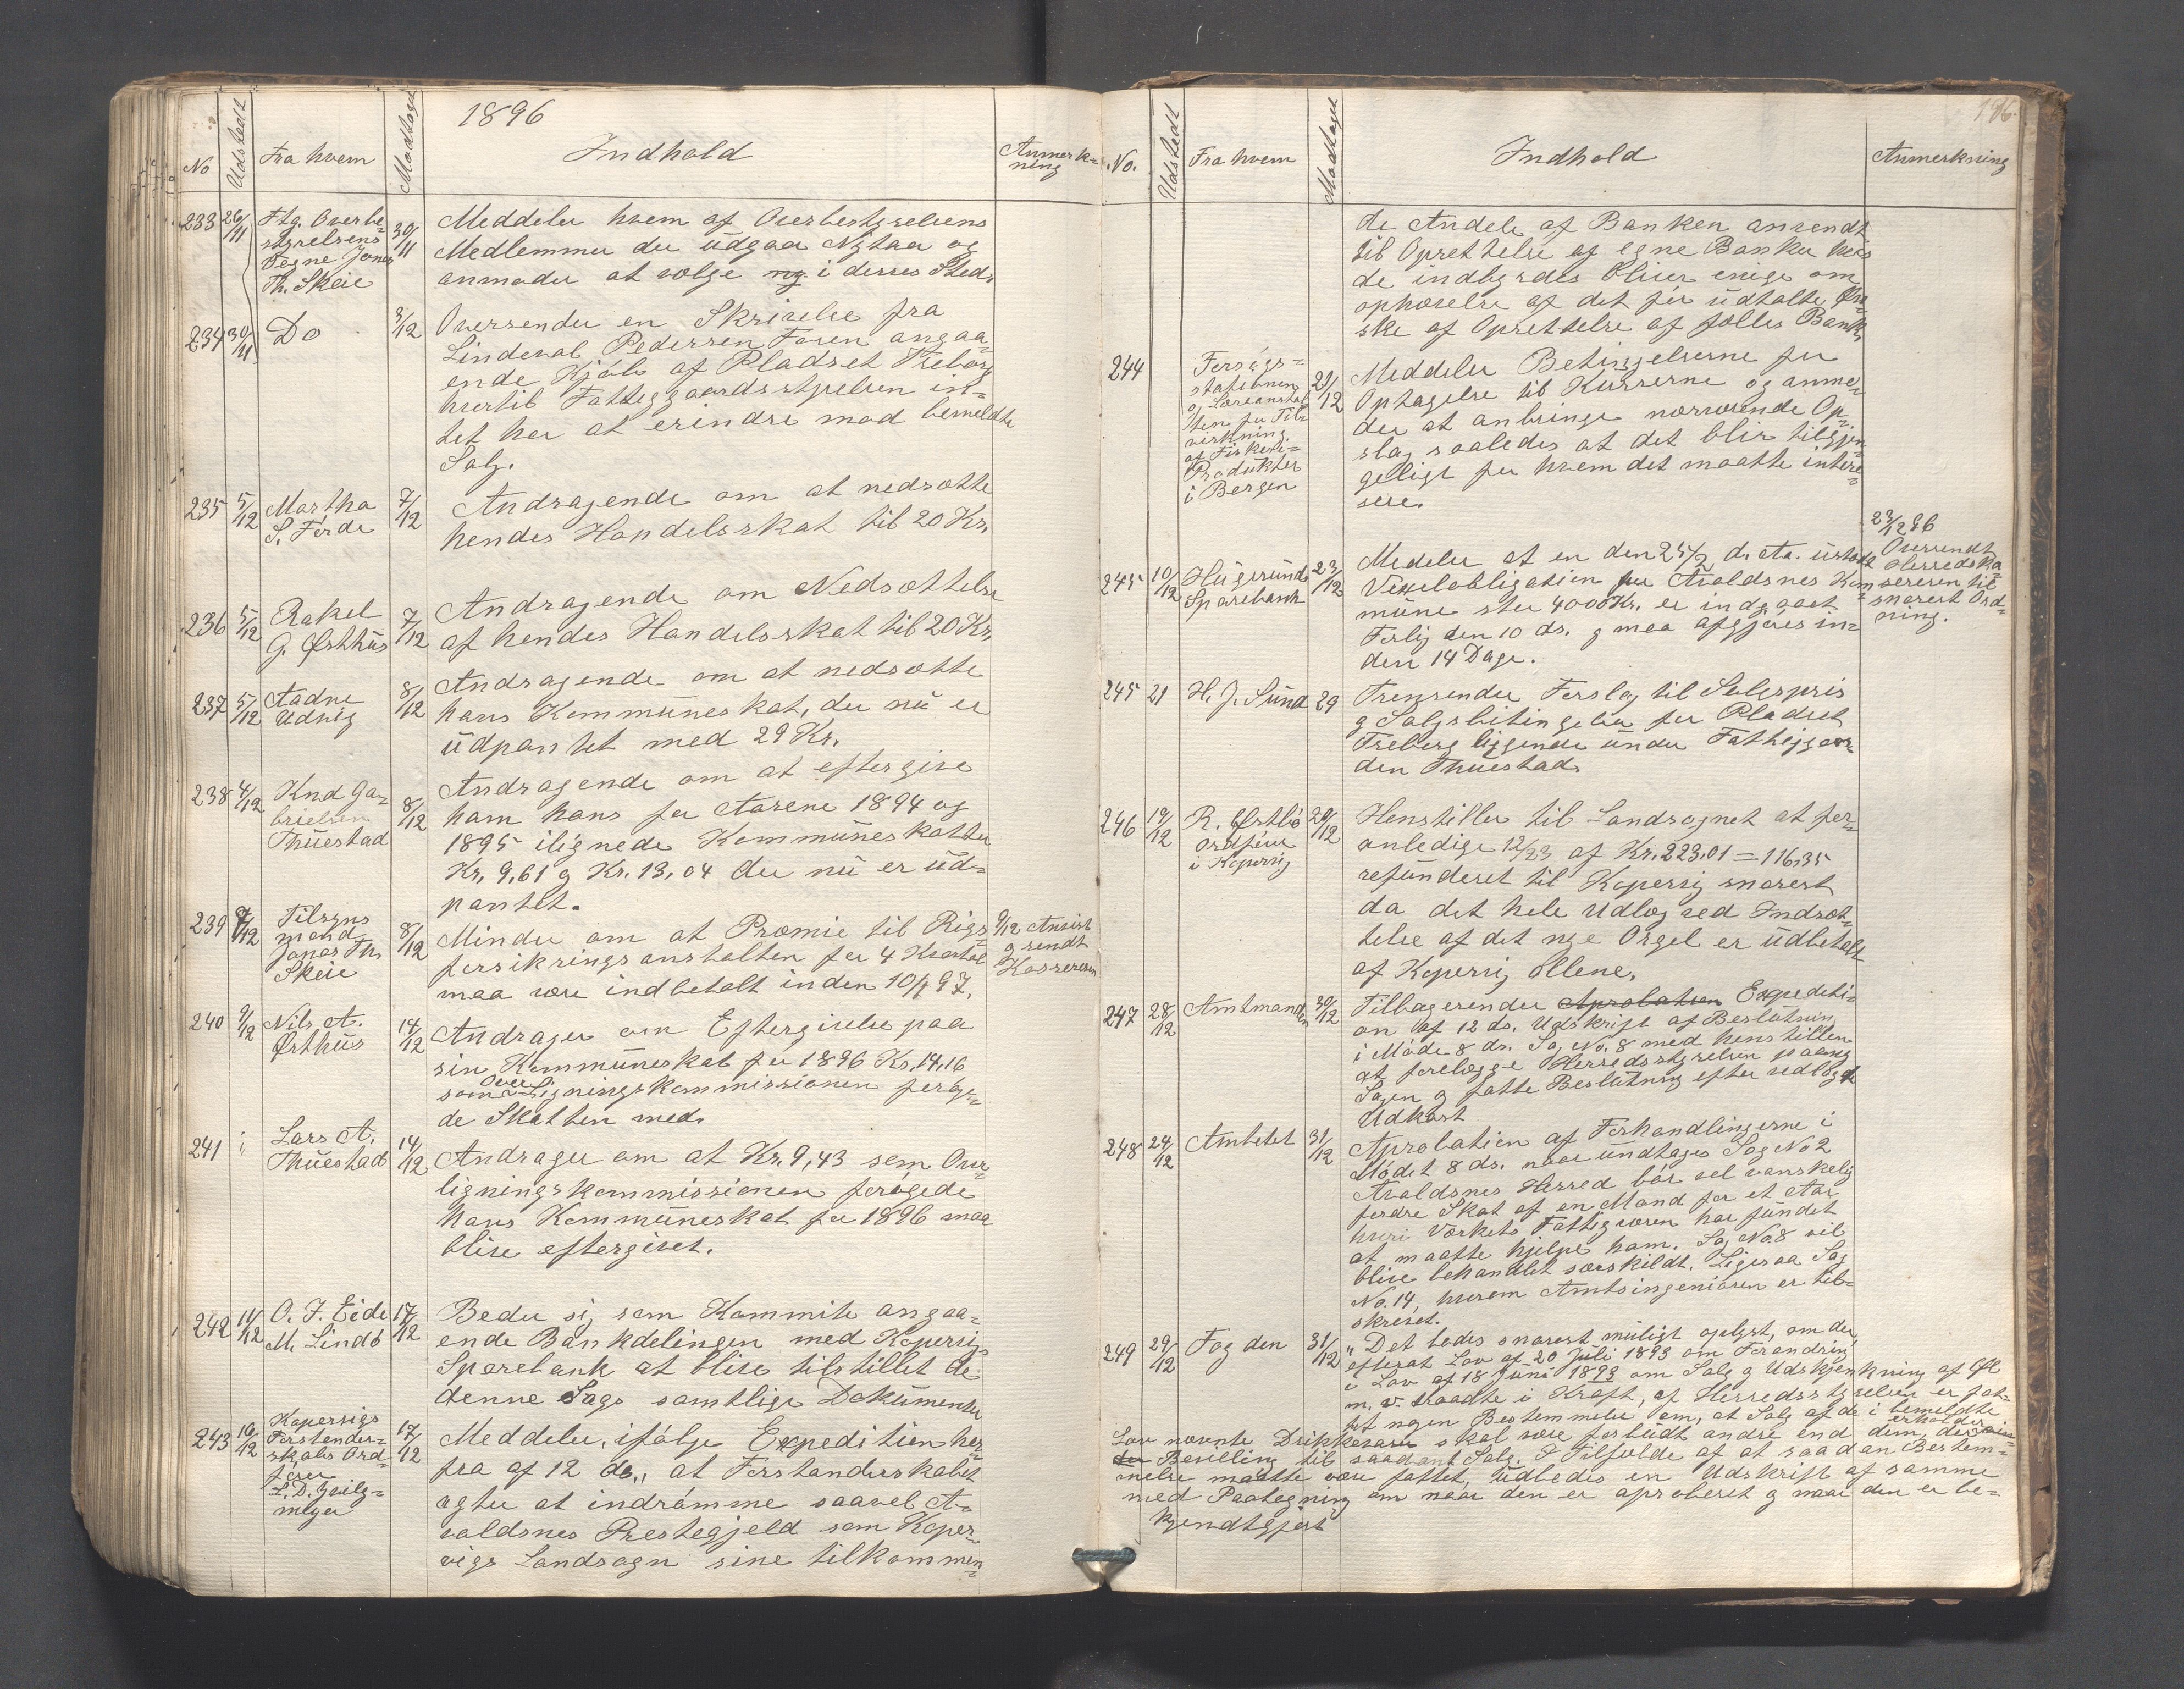 1896
No Udstedt Fra hvem Modtaget Indhold Anmerk=
ning
233 26/11 Ftg. Overbe=
styrelsens
Tegne Jonas
Th. Skeie
30/11 Meddeler hvem af Overbestyrelsens
Medlemmer der udgaa Nytaar og
anmoder at vælge ny i deres Sted.
234 30/11 Do 3/12 Oversender en Skrivelse fra
Lindeval Pedersen Føren angaa=
ende Kjøb af Pladset Treborg
hvortil Fattiggaardsstyrelsen in=
tet har at erindre mod bemeldte
Salg.
235 5/12 Martha
S. Førde
7/12 Andragende om at nedsætte
hendes Handelsskat til 20 Kr.
236 5/12 Rakel
G. Østhus
7/12 Andragende om Nedsættelse
af hendes Handelsskat til 20 Kr.
237 5/12 Aadne
Udvig
8/12 Andragende om at nedsætte
hans Kommuneskat, der nu er
udpantet med 29 Kr.
238 4/12 Knd Ga=
brielsen
Thuestad
8/12 Andragende om at eftergive
ham hans for Aarene 1894 og
1895 ilignede Kommuneskatter
Kr. 9,61 og Kr. 13,04 der nu er ud=
pantet.
239 7/12 Tilsyns
mand
Jonas Th.
Skeie
8/12 Minder om at Præmie til Rigs=
forsikringsanstalten for 4 Kvartal
maa være indbetalt inden 10/1 97.
9/12 Anvist
og sendt
Kassereren
240 9/12 Nils A.
Østhus
14/12 Andrager om Eftergivelse paa
sin Kommuneskat for 1896 Kr. 14,16
som Overligningskommissionen forhøi=
de Skatten med.
241 " Lars A.
Thuestad
14/12 Andrager om at Kr. 9,43 som Over=
ligningskommissionen forøgede
hans Kommuneskat for 1896 maa
blive eftergivet.
242 14/12 O. J. Eide
M. Lindø
17/12 Beder sig som Kommite angaa=
ende Bankdelingen med Kopervig
Sparebank at blive tilstillet de
denne Sags samtlige Dokumenter
243 16/12 Kopervigs
Forstander=
skabs Ord=
fører
L. D.
meyer
17/12 Meddeler, ifølge Expedition her
fra af 12 ds., at Forstanderskabet
agter at indrømme saavel A=
valdsnes Prestegjeld som Koper=
vigs Landsogn sine tilkommen=
196
No. Udstedt Fra hvem Modtaget Indhold Anmerkning
de Andele af Banken anvendt
til Oprettelse af egne Banker hvis
de indbyrdes bliver enige om
ophævelse af det før udtalte Øn=
ske af Oprettelse af fælles Bank.
244 Forsøgs=
stationen
og Læreanstal
ten for Til=
virkning
af Fiskeri=
Produkter
i Bergen
21/12 Meddeler Betingelserne for
Optagelse til Kurserne og anmo=
der at anbringe nærværende Op=
slag saaledes at det blir tilgjæn=
geligt for hvem det maatte intere=
sere.
245 10/12 Hugesunds
Sparebank
23/12 Medeler at en den 25/2 d. Aa. ustedt
Vexelobligation for Avaldsnes Kom=
mune stor 4000 Kr. er indgaaet
Forlig den 10 ds. og maa afgjøres in=
den 14 Dage.
23/12 96
Oversendt
Herredska
sereren til
snarest Ord=
ning.
245 21 H. J. Sund 29 Fremsender Forslag til Salgspris
og Salgsbetingelser for Pladset
Treborg liggende under Fattiggaar
den Thuestad.
246 19/12 R. Østbø
ordfører
i Kopervig
20/12 Henstiller til Landsognet at for=
anledige 12/23 af Kr. 223,01 = 116,35
refunderet til Kopervig snarest
da det hele Udlæg ved Indsæt=
telse af det nye Orgel er udbetalt
af Kopervig allene.
247 28/12 Amtmanden 30/12 Tilbagesender Aprobation Expediti=
on af 12 ds. Udskrift af Beslutning
i Møde 8 ds. Sag No. 8 med henstillen
at forelægge Herredsstyrelsen paany
Sagen og fatte Beslutning efter vedlagte
Udkast
248 24/12 Amtetet 31/12 Aprobation af Forhandlingerne i
Mødet 8 ds. naar undtages Sag No 2
Avaldsnes Herred bør vel vanskelig
fordre Skat af en Mand for et Aar
hvori Værkets Fattigvæsen har fundet
at maatte hjelpe ham. Sag No 8 vil
blive behandlet særskildt. Ligesaa Sag
No. 14, hvorom Amtsingeniøren er til=
skrevet.
249 29/12 Fogden 31/12 "Det bedes snarest muligt oplyst, om der,
efterat Lov af 20 Juli 1893 om Forandring
i Lov af 18 Juni 1893 om Salg og Udskjænkning af Øl
m. v. traadte i Kraft, af Herredsstyrelsen er fat=
tet nogen Bestemmelse om, at Salg af de i bemeldte
Lov nævnte Drikkevarer skal være forbudt andre end dem, der erholder
Bevilling til saadant Salg. I Tilfælde af at saadan Bestem=
melse maatte være fattet, udbedes en Udskrift af samme
med Paategning om naar den er aproberet og naar den er be=
kjendtgjort